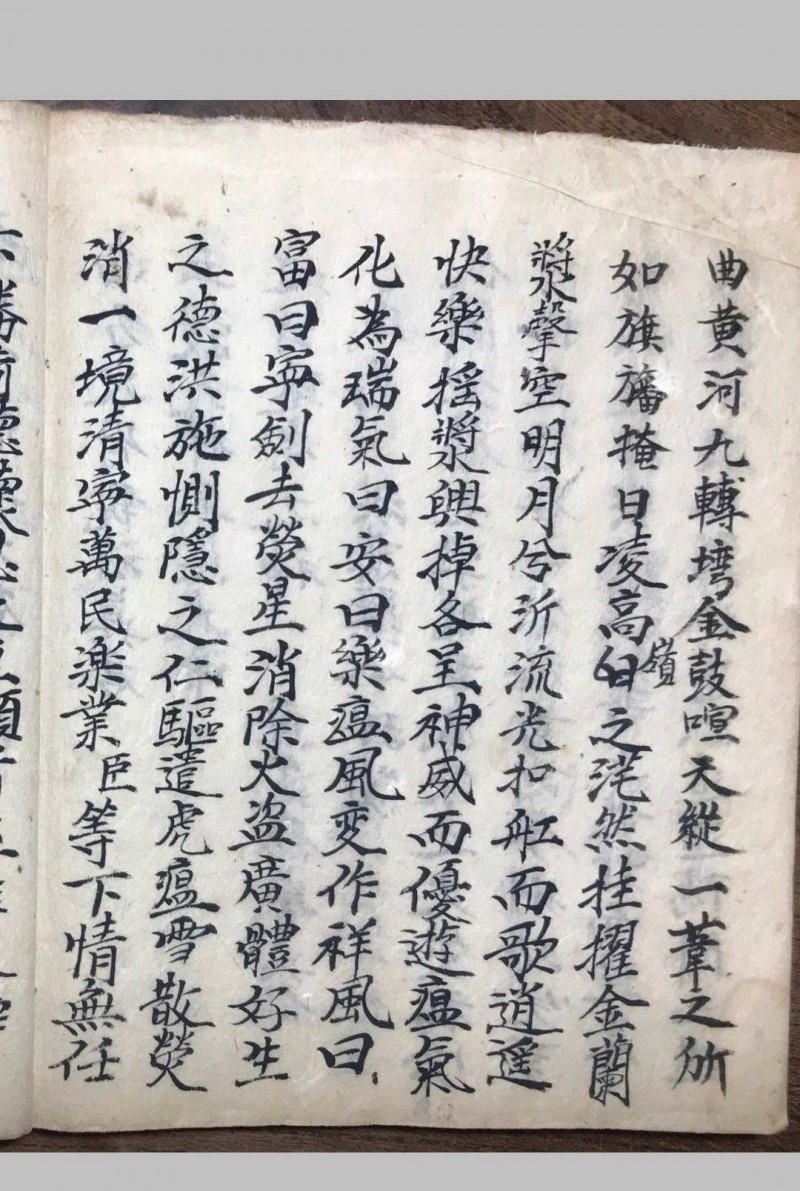 曲黄河九轉灣金鼓喧天縱一葦之所
如旗旛掩日凌高嶺之茫然挂擢金蘭
槳擊空明月兮泝流光扣舡而歌逍遥
快樂摇槳興掉各呈神威而優遊瘟氣
化為瑞氣曰安曰樂瘟風变作祥風曰
富曰寜劍去熒星消除火盗廣體好生
之德洪施惻隱之仁驅遣虎瘟雪散熒
消一境清寜萬民楽業臣等下情無任